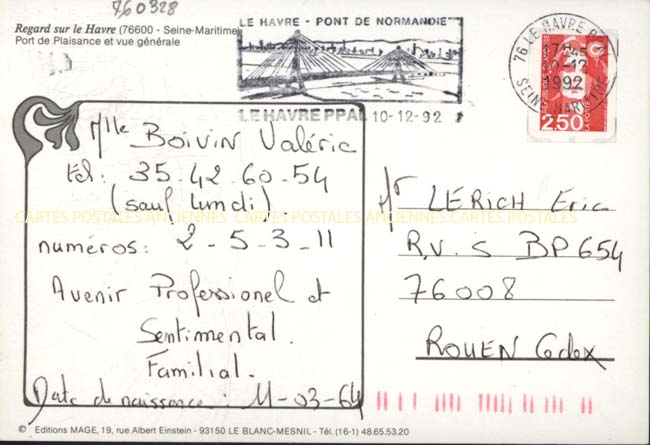 760328
Regard sur le Havre (76600 - Seine-Maritime)
Port de Plaisance et vue générale
LE HAVRE - PONT DE NORMANDIE
LE HAVRE PPAL 10-12-92
76 LE HAVRE PPAL
17H45
10-12
1992
SEINE MARITIME
2,50
Mlle Boivin Valérie
tél: 35.42.60.54
(sauf lundi).
numéros: 2-5-3-11
Avenir Professionel et
Sentimental.
Familial.
Date de naissance: 11-03-64
Mr LERICH Eric
R.V.S BP 654
76008
ROUEN Cedex
CARTES POSTALES ANCIENNES CARTES POSTALES ANCIENNES
© Editions MAGE, 19, rue Albert Einstein - 93150 LE BLANC-MESNIL - Tél. (16-1) 48.65.53.20